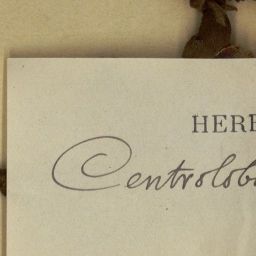 HERB
Centrolob